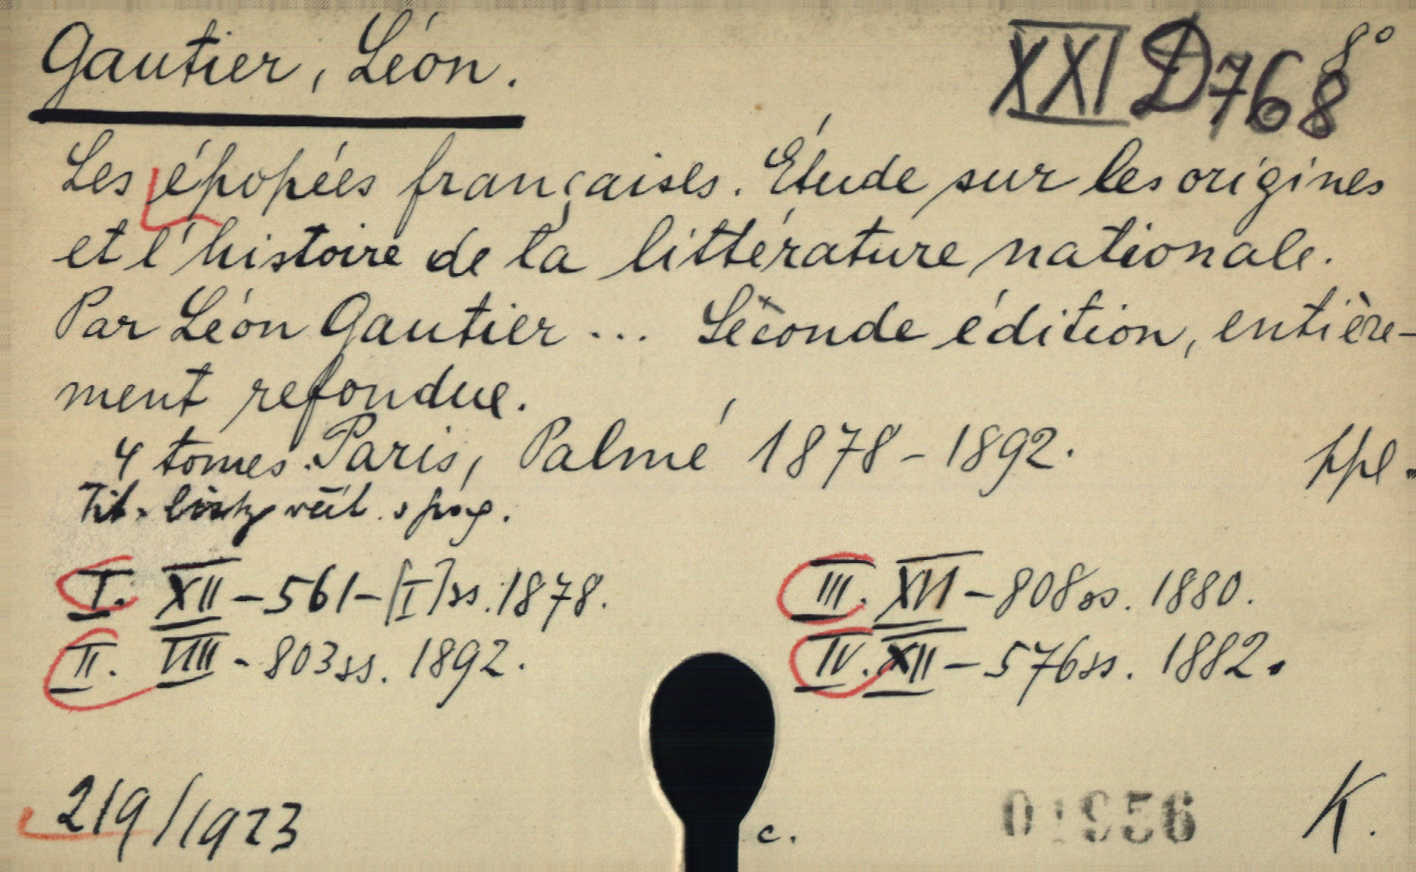 Gautier, Léon.
XXI D 768
8°
Les épopées françaises. Étude sur les origines
et l'histoire de la littérature nationale.
Par Léon Gautier ... Seconde édition, entière-
ment refondue.
4 tomes. Paris, Palmé 1878-1892. ppl.
Tit. listy
I. XII-561-[I] ss. 1878.
II. VIII - 803 ss. 1892.
III. XVI - 808 ss. 1880.
IV. XII - 576 ss. 1882.
219/1923
c.
01956
K.